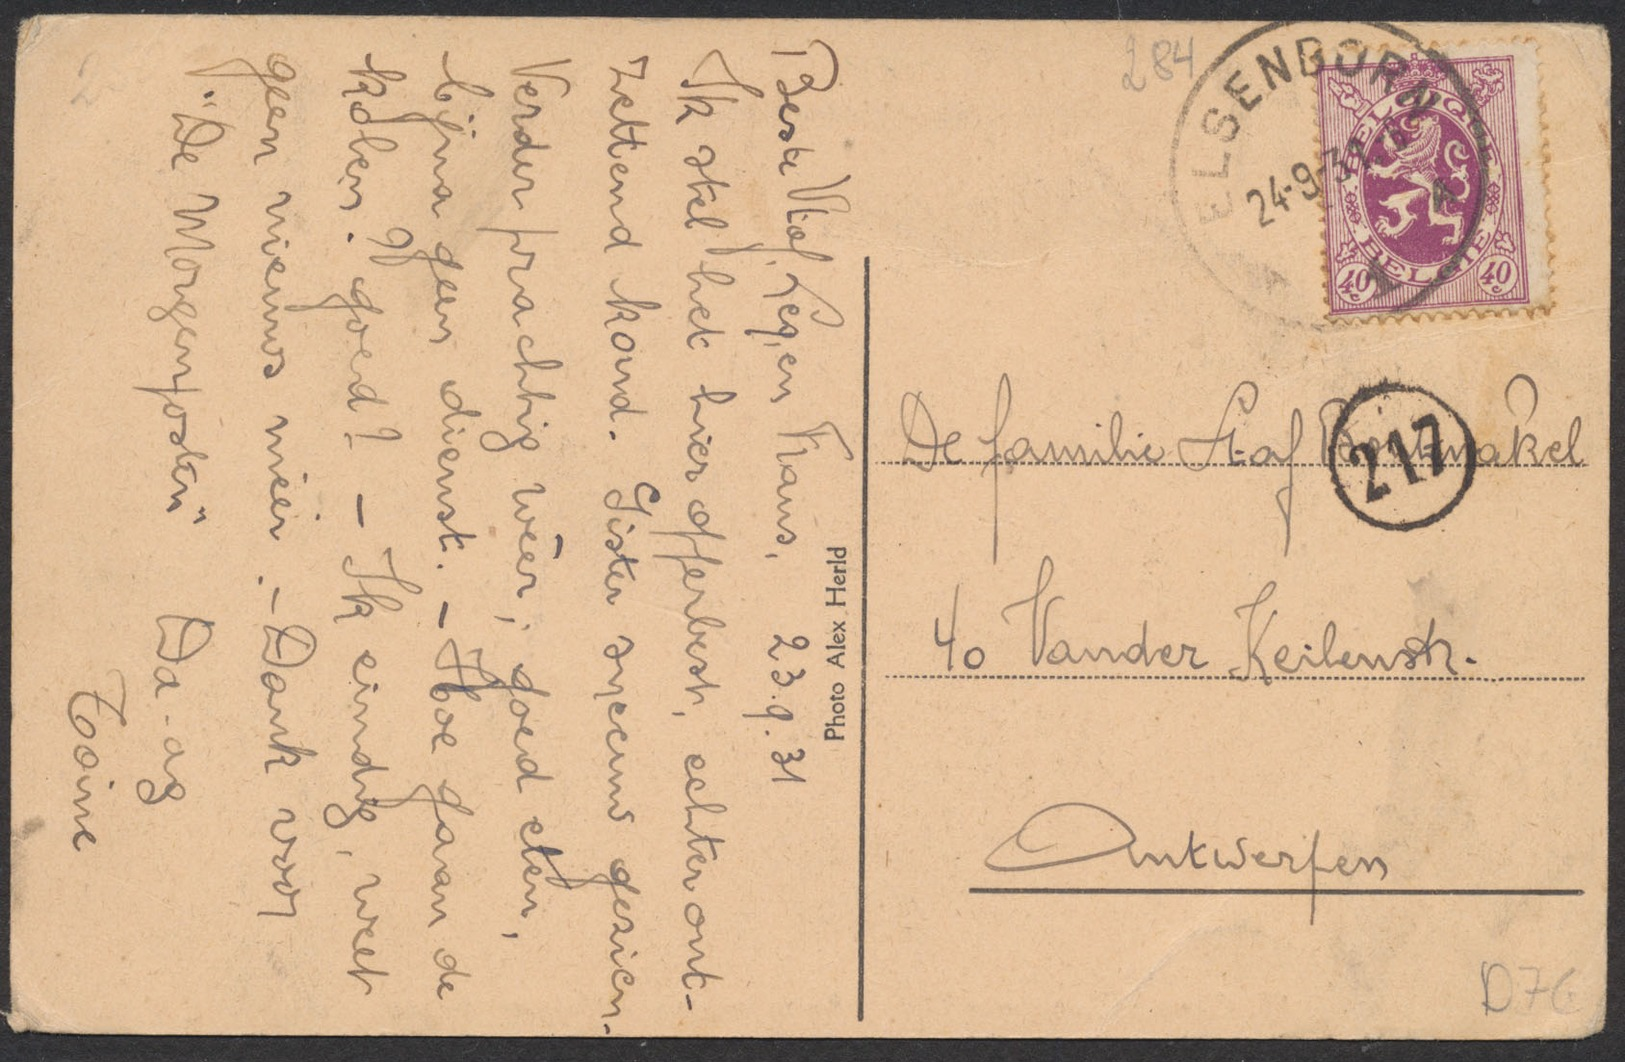 Beste Staf, Leo, en Frans,
23.9.31
Ik stel het hier opperbest, echter ont-
zettend koud. Gister sneeuw gezien.
Verder prachtig weer, goed eten,
bijna geen dienst. - Hoe gaan de
zaken? goed? - Ik eindig, weet
geen nieuws meer. - Dank voor
"De Morgenposten" Da-ag
Toine
Photo Alex Herld
284
ELSENBORN
24-9-31
BELGIQUE
BELGIE
40c 40c
217
De familie Staf
40 Vander Keilenstr.
Antwerpen
D76